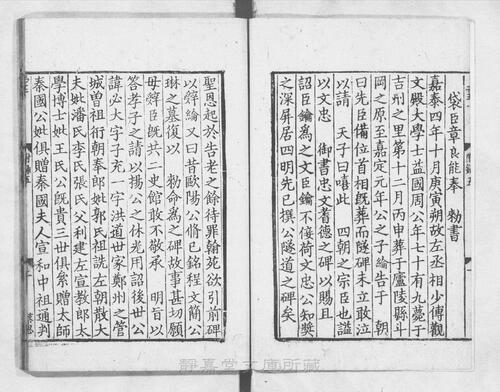 袋臣章良能奉　勑書
嘉泰四年十月庚寅朔故左丞相少傅觀
文殿大學士益國周公年七十有九薨于
吉州之里第十二月丙申葬于廬陵縣斗
岡之原至嘉定元年公之子綸告于　朝
曰先臣備位首相既葬而隧碑未立敢泣
以請　天子曰嘻此　四朝之宗臣也謚
以文忠　御書忠文耆德之碑以賜且
詔臣鑰為之文鑰不佞荷文忠公知奬
之深屏居四明先已撰公隧道之碑矣
聖恩起於告老之餘待罪翰苑欲引前碑
以辭綸又曰昔歐陽公脩已銘程文簡公
琳之墓復以　勑命為之碑故事甚切願
毋辭臣既共二史館敢不敬承　明旨以
答孝子之請以揚公之休光用詔後世公
諱必大字子充一字洪道世家鄭州之管
城曾祖衎朝奉郎妣郭氏祖詵左朝散大
夫妣潘氏李氏張氏父利建左宣教郎太
學博士妣王氏公既貴三世俱絫贈太師
秦國公妣俱贈秦國夫人宣和中祖通判
靜嘉堂文庫所藏